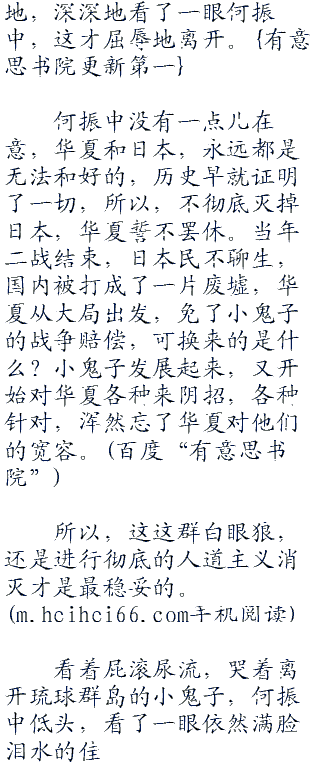 地，深深地看了一眼何振
中，这才屈辱地离开。{有意
思书院更新第一}
何振中没有一点儿在
意，华夏和日本，永远都是
无法和好的，历史早就证明
了一切，所以，不彻底灭掉
日本，华夏誓不罢休。当年
二战结束，日本民不聊生，
国内被打成了一片废墟，华
夏从大局出发，免了小鬼子
的战争赔偿，可换来的是什
么？小鬼子发展起来，又开
始对华夏各种来阴招，各种
针对，浑然忘了华夏对他们
的宽容。(百度“有意思书
院”)
所以，这这群白眼狼，
还是进行彻底的人道主义消
灭才是最稳妥的。
(m.hcihci66.com手机阅读)
看着屁滚尿流，哭着离
开琉球群岛的小鬼子，何振
中低头，看了一眼依然满脸
泪水的佳